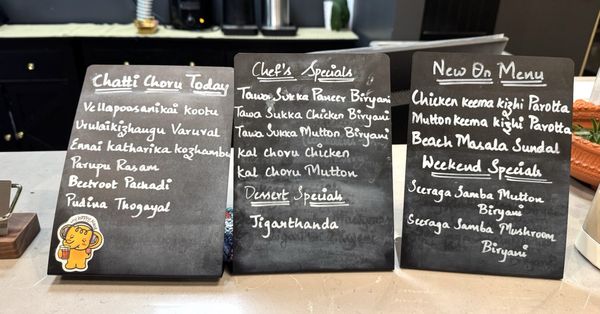 Chatti Choru Today
Vellapoosanikai Kootu
Urulaikizhangu Varuval
Ennai katharika kozhambu
Parupu Rasam
Beetroot Pachadi
Pudina Thogayal
Chef's Specials
Tawa Sukka Paneer Biryani
Tawa Sukka Chicken Biryani
Tawa Sukka Mutton Biryani
kal choru Chicken
kal choru Mutton
Dessert Specials
Jigarthanda
New On Menu
Chicken keema kizhi Parotta
Mutton keema kizhi Parotta
Beach Masala Sundal
Weekend Specials
Seeraga Samba Mutton
Biryani
Seeraga Samba Mushroom
Biryani